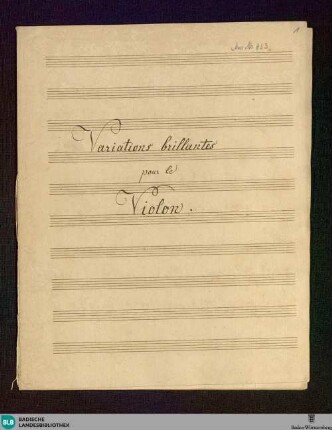 Variations brillantes
pour le
Violon.
BLB BADISCHE
LANDESBIBLIOTHEK
Baden-Württemberg